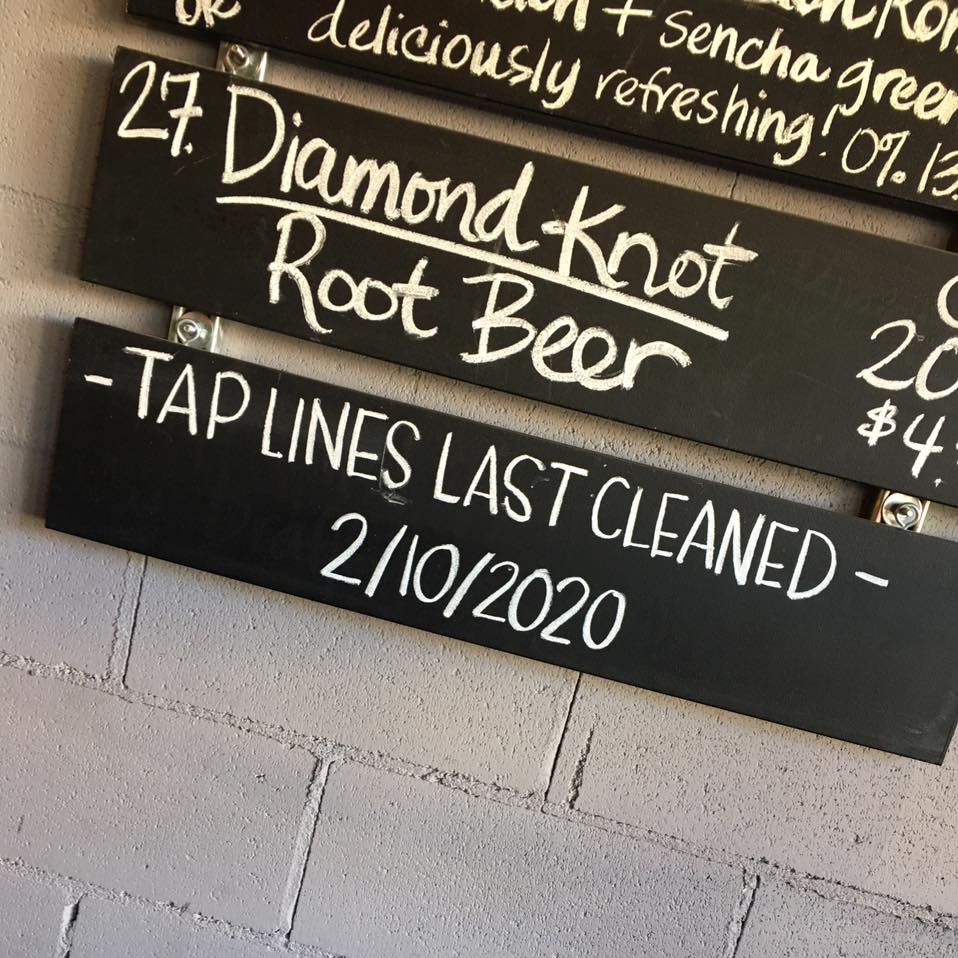 + sencha green
deliciously refreshing! 0%.
27. Diamond Knot
Root Beer
20
$4.
-TAP LINES LAST CLEANED-
2/10/2020